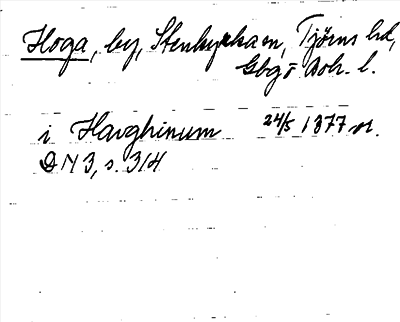 Hoga, by, Stenkyrka sn, Tjörns hd,
Gbg o Boh. l.
i Havghinum 24/5 1377 or.
DN 3, s. 314